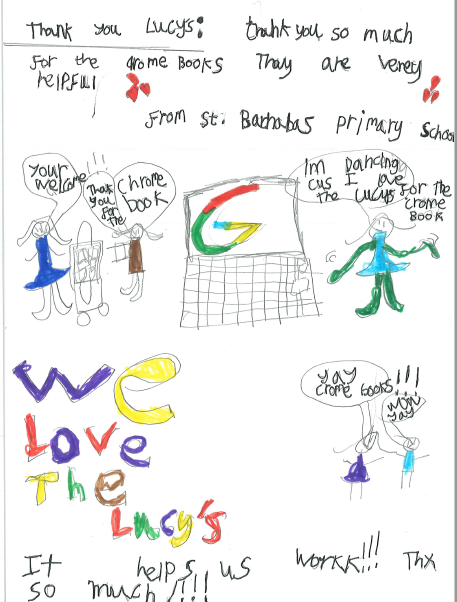 Thank you Lucy's: thank you so much
For the crome Books They are verey
helpfull
From St. Barnabas primary School
Your welcome
!!!
Thank you for the
Chrome book
Im Dancing
cus I love
the Lucys For the
crome
Book
G
We
Love
The
Lucy's
yay
crome books!!!
wow
yay
It helps us workk!!! Thx
so much!!!!